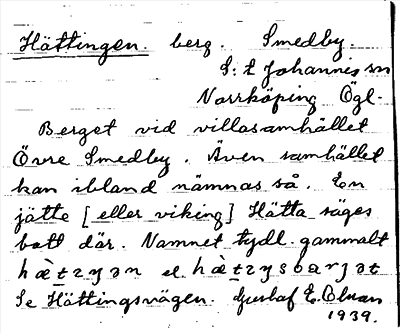 Hättingen. berg. Smedby.
S:t Johannis sn
Norrköping Ögl.
Berget vid villasamhället
Övre Smedby. Även samhället
kan ibland nämnas så. En
jätte [eller viking] Hätta säges
bott där. Namnet tydl. gammalt
el.
Se Hättingsvägen. Gustaf E. Olsson
1939.